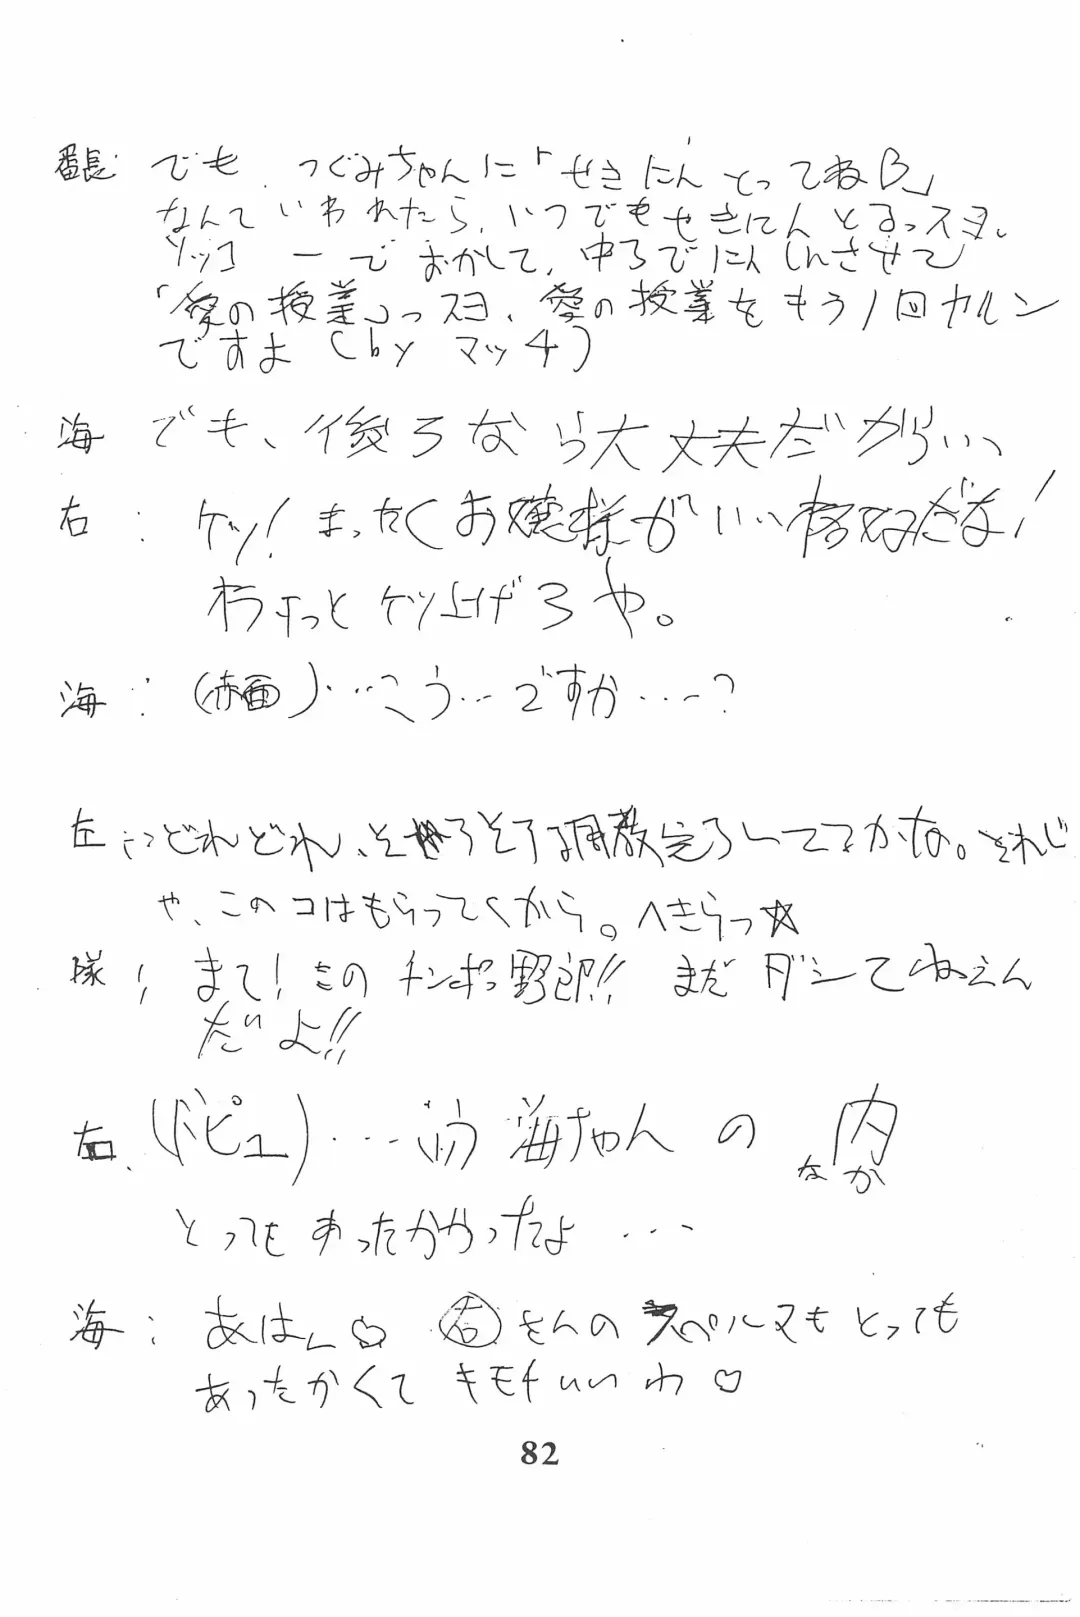 番長: でも、つぐみちゃんに「せきにんとってねB」
なんていわれたら、いつでもせきにんとるっスヨ。
ソッコーでおかして、中ろでにんしんさせて
「愛の授業」っスヨ、愛の授業をもう1回カルン
ですよ(by マッチ)
海 でも、後ろなら大丈夫だからいっ
右: ケッ!まったくお嬢様がいい格好だな!
もっとケツ上げろや。
海: (赤面)…こう…ですか…?
左: どれどれ、そろそろ調教完了してるかな。それじ
や、このコはもらってくから。へきらっ☆
隊! まて!このチンポ野郎!! まだダシてねえん
だよ!!
右 (ドピュ)… 海ちゃんの内
なか
とってもあったかかったよ…
海: あはん♡ 右さんのスペルマもとっても
あったかくてキモチいいわ♡
82